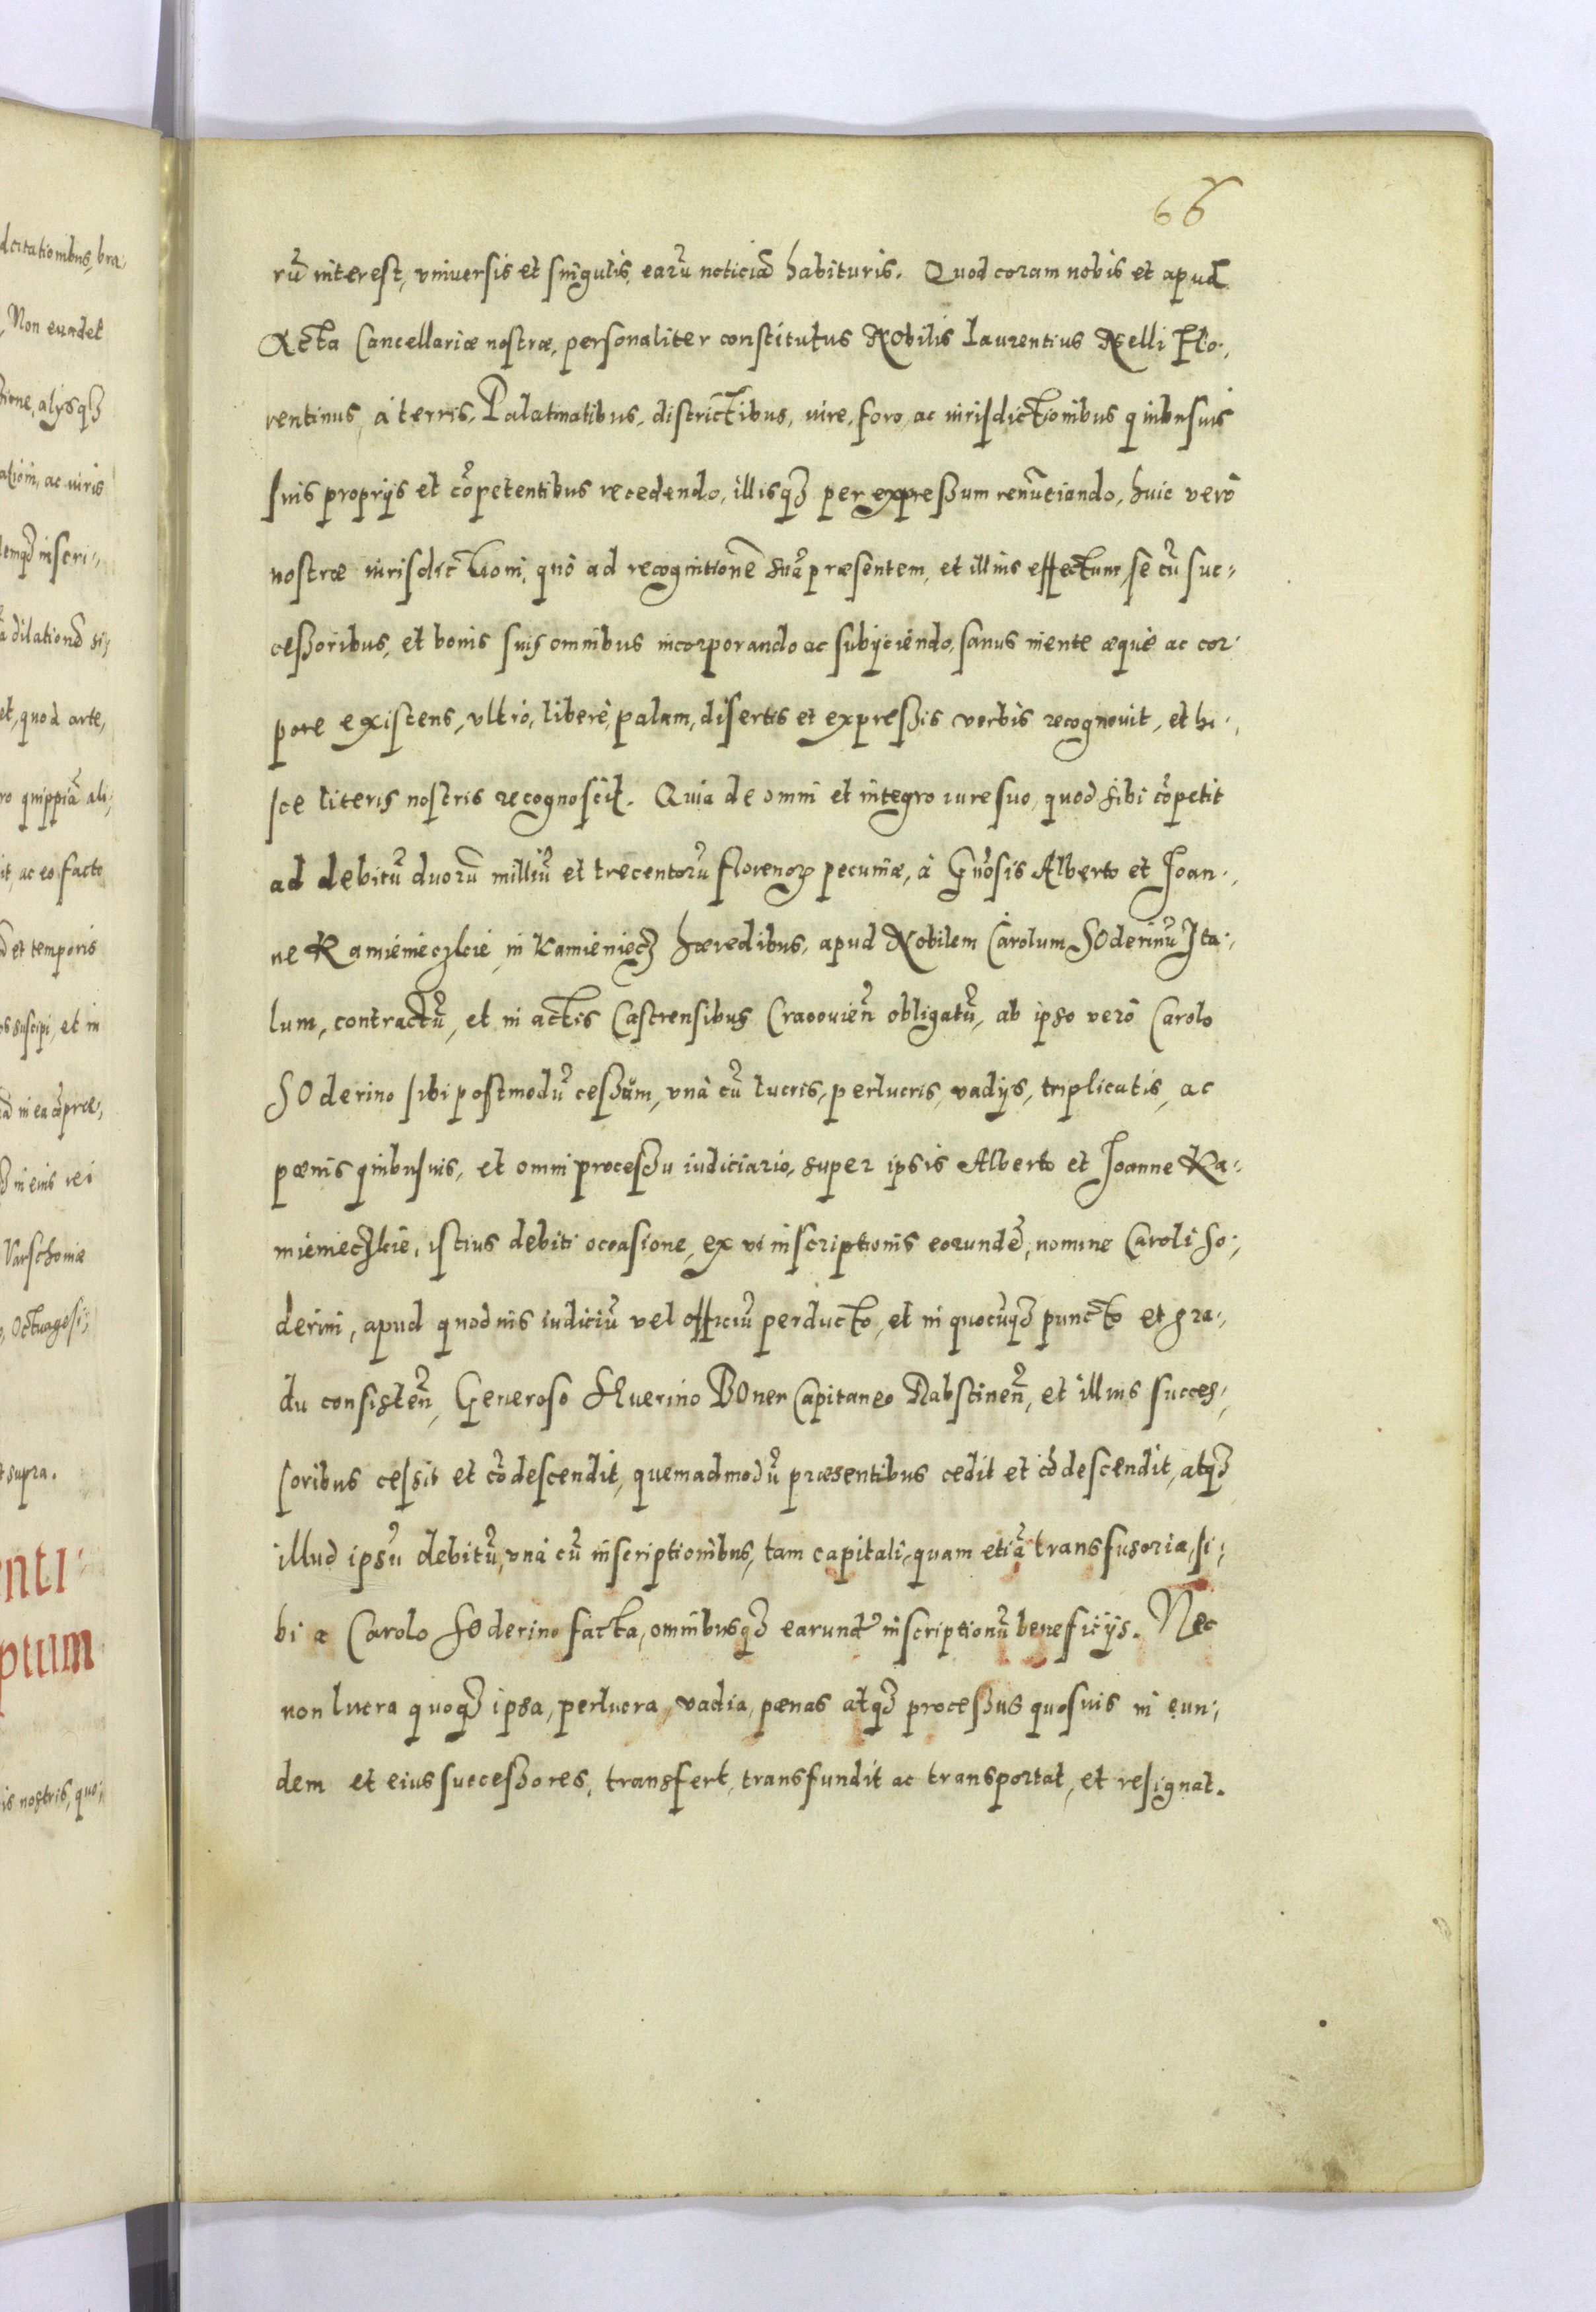 66
rũ interest, vniuersis et singulis, earũ noticiã habituris. Quod coram nobis et apud
Acta Cancellariæ nostræ, personaliter constitutus Nobilis Laurentius Nelli Flo-
rentinus, à terris, Palatinatibus, districtibus, iure, foro, ac iurisdictionibus quibusuis
suis proprijs et cõpetentibus recedendo, illisqȝ per expressum renũciando, huic verò
nostræ iurisdictioni, quò ad recognitionẽ suã præsentem, et illius effectum, se cũ suc-
cessoribus, et bonis suis omnibus incorporando ac subijciendo, sanus mente æquè ac cor-
pore existens, vltrò, liberè, palam, disertis et expressis verbis recognouit, et hi-
sce literis nostris recognoscit. Quia de omni et integro iure suo, quod sibi cõpetit
ad debitũ duorũ milliũ et trecentorũ florenoꝝ pecuniæ, à Gñosis Alberto et Joan-
ne Kamienieczkie, in Kamieniecz hæredibus, apud Nobilem Carolum Soderinũ Ita-
lum, contractũ, et in actis Castrensibus Cracouieñ obligatũ, ab ipso verò Carolo
Soderino sibi postmodũ cessum, vnà cũ lucris, perlucris, vadijs, triplicatis, ac
pœnis quibusuis, et omni processu iudiciario, super ipsis Alberto et Joanne Ka-
mienieczkie, istius debiti occasione, ex vi inscriptionis eorundẽ, nomine Caroli So-
derini, apud quoduis iudiciũ vel officiũ perducto, et in quocũqȝ puncto et gra-
du consisteñ, Generoso Seuerino Boner Capitaneo Rabstineñ, et illius succes-
soribus cessit et cõdescendit, quemadmodũ præsentibus cedit et cõdescendit, atqȝ
illud ipsũ debitũ, vnà cũ inscriptionibus, tam capitali, quam etiã transfusoria, si-
bi a Carolo Soderino facta, omnibusqȝ earundẽ inscriptionũ beneficijs. Nec
non lucra quoqȝ ipsa, perlucra, vadia, pœnas atqȝ processus quosuis in eun-
dem et eius successores, transfert, transfundit ac transportat, et resignat.